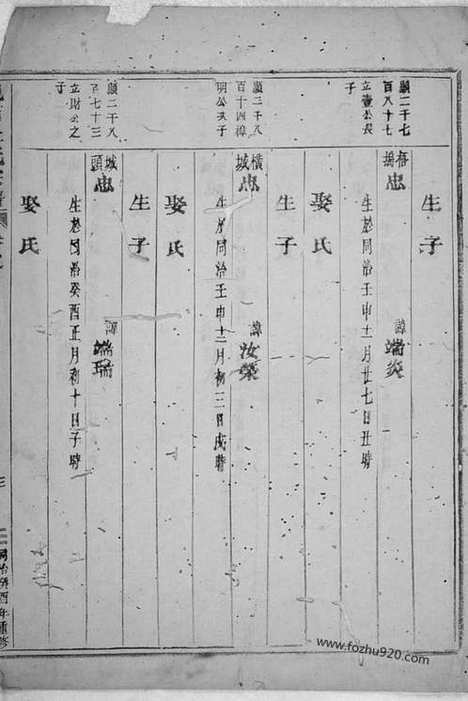 生子
順二千七
百八十七
立𡔷公長
子
梧塢忠 諱端炎
生於同治壬申十二月廿七日丑時
娶氏
生子
順二千八
百十四樟
明公次子
橫城忠 諱汝榮
生於同治壬申十二月初三日戌時
娶氏
生子
順二千八
百七十三
立財公之
子
城頭忠 諱端瑞
生於同治癸酉正月初十日子時
娶氏
同治癸酉年重修
www.fozhu920.com